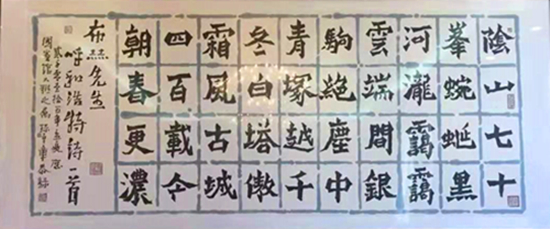 陰山七十
峯蜿蜒黑
河瀧靄靄
雲端間銀
駒絕塵中
青塚越千
冬白塔傲
霜風古城
四百載今
朝春更濃
布赫先生
呼和浩特詩一首